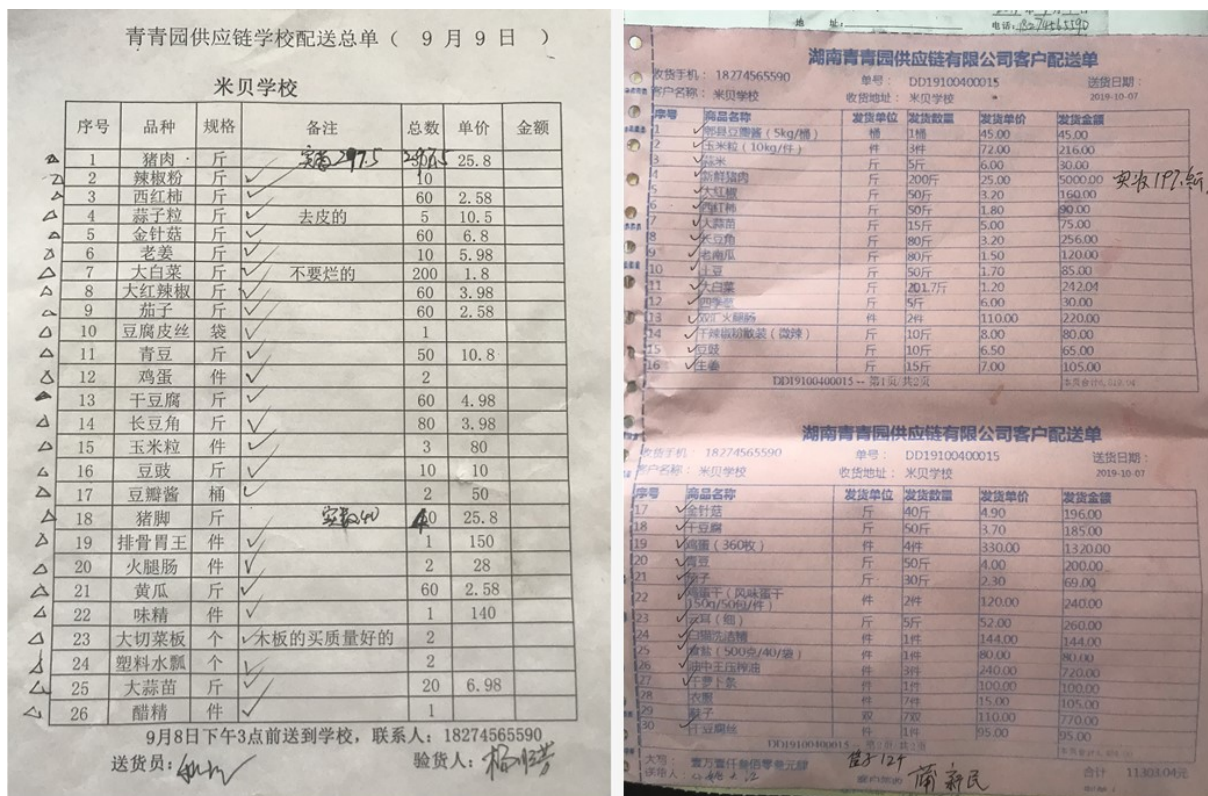 青青园供应链学校配送总单（ 9 月 9 日 ）
米贝学校
序号 品种 规格 备注 总数 单价 金额
1 猪肉 斤 实数297.5 297.5 25.8
2 辣椒粉 斤 10
3 西红柿 斤 60 2.58
4 蒜子粒 斤 去皮的 5 10.5
5 金针菇 斤 60 6.8
6 老姜 斤 10 5.98
7 大白菜 斤 不要烂的 200 1.8
8 大红辣椒 斤 60 3.98
9 茄子 斤 60 2.58
10 豆腐皮丝 袋 1
11 青豆 斤 50 10.8
12 鸡蛋 件 2
13 干豆腐 斤 60 4.98
14 长豆角 斤 80 3.98
15 玉米粒 件 3 80
16 豆豉 斤 10 10
17 豆瓣酱 桶 2 50
18 猪脚 斤 实数40 40 25.8
19 排骨胃王 件 1 150
20 火腿肠 件 2 28
21 黄瓜 斤 60 2.58
22 味精 件 1 140
23 大切菜板 个 木板的买质量好的 2
24 塑料水瓢 个 2
25 大蒜苗 斤 20 6.98
26 醋精 件 1
9月8日下午3点前送到学校，联系人：18274565590
送货员： 验货人：
地 址： 电话：18274565590
湖南青青园供应链有限公司客户配送单
收货手机： 18274565590 单号： DD19100400015 送货日期：
客户名称： 米贝学校 收货地址： 米贝学校 2019-10-07
序号 商品名称 发货单位 发货数量 发货单价 发货金额
1 郫县豆瓣酱（5kg/桶） 桶 1桶 45.00 45.00
2 玉米粒（10kg/件） 件 3件 72.00 216.00
3 蒜米 斤 5斤 6.00 30.00
4 新鲜猪肉 斤 200斤 25.00 5000.00 实收197
5 大红椒 斤 50斤 3.20 160.00
6 西红柿 斤 50斤 1.80 90.00
7 大蒜苗 斤 15斤 5.00 75.00
8 长豆角 斤 80斤 3.20 256.00
9 老南瓜 斤 80斤 1.50 120.00
10 土豆 斤 50斤 1.70 85.00
11 大白菜 斤 201.7斤 1.20 242.04
12 四季葱 斤 5斤 6.00 30.00
13 双汇火腿肠 件 2件 110.00 220.00
14 干辣椒粉散装（微辣） 斤 10斤 8.00 80.00
15 豆豉 斤 10斤 6.50 65.00
16 生姜 斤 15斤 7.00 105.00
DD19100400015 -- 第1页/共2页 本页合计
湖南青青园供应链有限公司客户配送单
收货手机： 18274565590 单号： DD19100400015 送货日期：
客户名称： 米贝学校 收货地址： 米贝学校 2019-10-07
序号 商品名称 发货单位 发货数量 发货单价 发货金额
17 金针菇 斤 40斤 4.90 196.00
18 干豆腐 斤 50斤 3.70 185.00
19 鸡蛋（360枚） 件 4件 330.00 1320.00
20 青豆 斤 50斤 4.00 200.00
21 茄子 斤 30斤 2.30 69.00
22 鸡蛋干（风味蛋干 150g/50包/件） 件 2件 120.00 240.00
23 云耳（细） 斤 5斤 52.00 260.00
24 白猫洗洁精 件 1件 144.00 144.00
25 食盐（500克/40/袋） 件 1件 80.00 80.00
26 油中王压榨油 件 3件 240.00 720.00
27 干萝卜条 件 1件 100.00 100.00
28 衣服 件 7件 15.00 105.00
29 鞋子 双 7双 110.00 770.00
30 干豆腐丝 件 1件 95.00 95.00
DD19100400015 -- 第2页/共2页
大写： 壹万壹仟叁佰零叁元肆 合计 11303.04元
送货人： 蒲新民